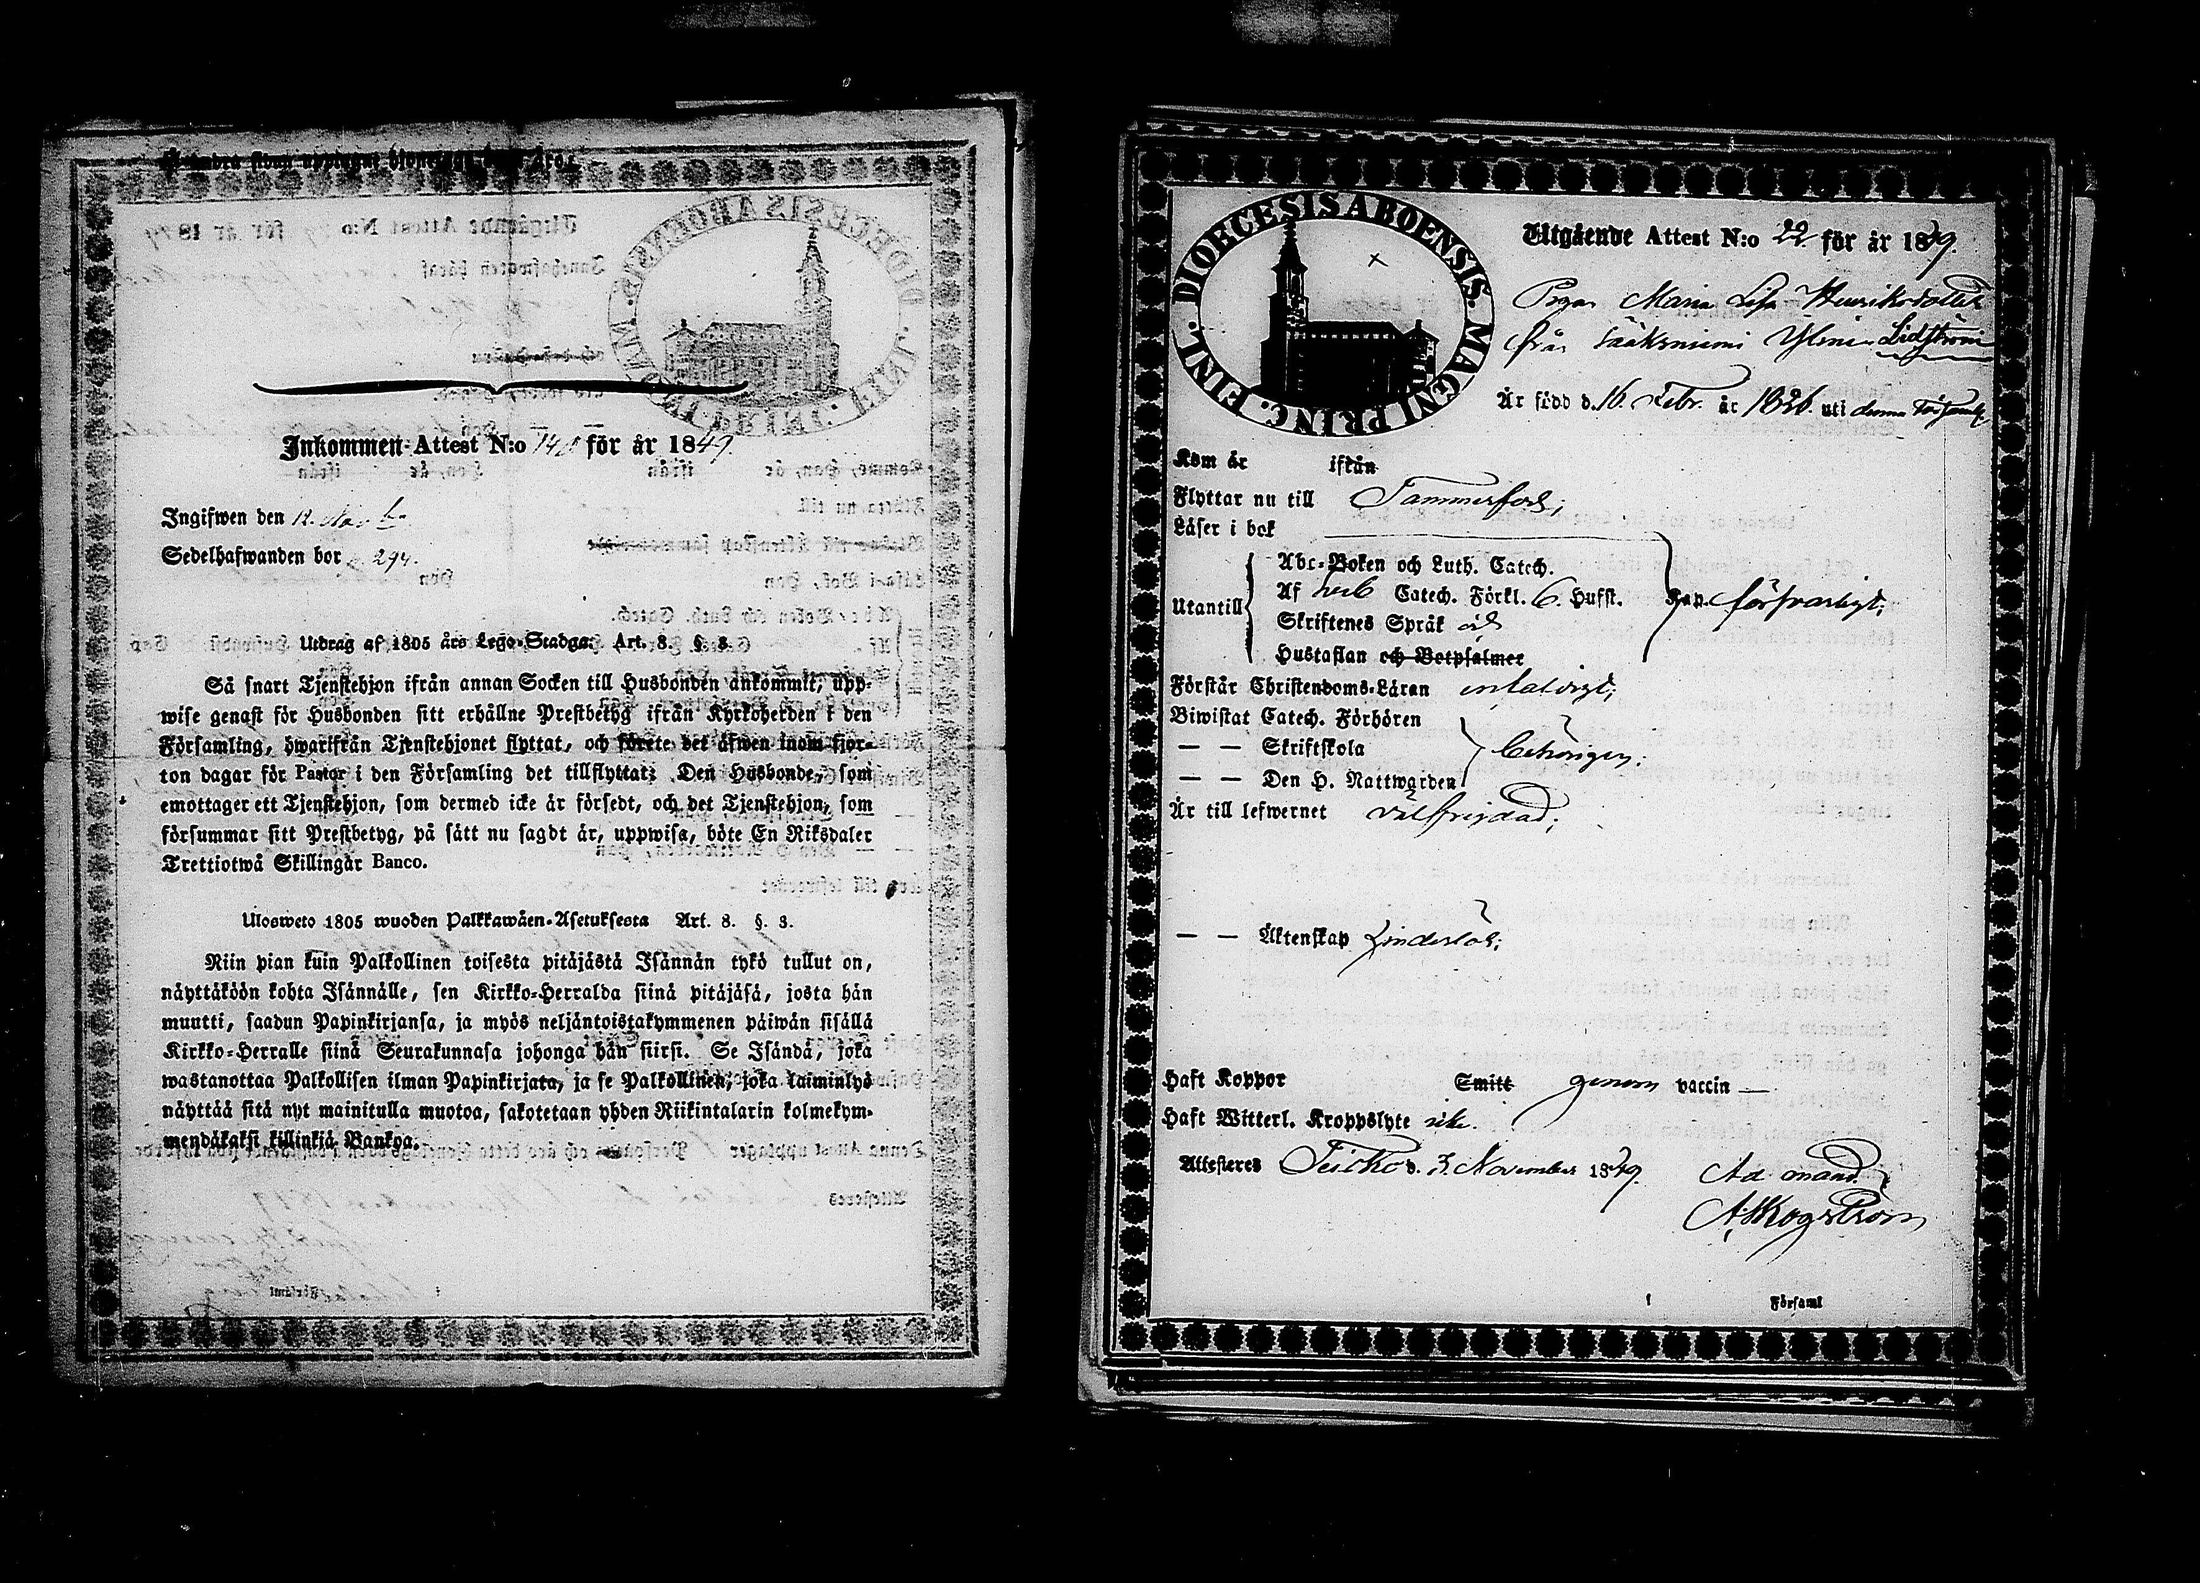 Inkommen Attest N:o för år 1849.
Ingifwen den 12.
Sedelhafwanden bor 294.
Utdrag af 1805 års Lego-Stadga; Art. 8. §. 3.
Så snart Tjenstehjon ifrån annan Socken till Husbonden ankommit, upp-
wise genast för Husbonden sitt erhållne Prestbetyg ifrån Kyrkoherden i den
Församling, hwarifrån Tjenstehjonet flyttat, och förete det äfwen inom fjor-
ton dagar för Pastor i den Församling det tillflyttat; Den Husbonde, som
emottager ett Tjenstehjon, som dermed icke är försedt, och det Tjenstehjon, som
försummar sitt Prestbetyg, på sätt nu sagdt är, uppwisa, böte En Riksdaler
Trettiotwå Skillingar Banco.
Ulosweto 1805 wuoden Palkkawäen-Asetuksesta Art. 8. §. 3.
Niin pian kuin Palkollinen toisesta pitäjästä Isännän tykö tullut on,
näyttäköön kohta Isännälle, sen Kirkko-Herralda siinä pitäjäsä, josta hän
muutti, saadun Papinkirjansa, ja myös neljäntoistakymmenen päiwän sisällä
Kirkko-Herralle siinä Seurakunnasa johonga hän siirsi. Se Isändä, joka
wastanottaa Palkollisen ilman Papinkirjata, ja se Palkollinen, joka laiminlyö
näyttää sitä nyt mainitulla muotoa, sakotetaan yhden Riikintalarin kolmekym-
mendäkaksi killinkiä Bankoa.
DIOECESIS ABOENSIS. MAGNI PRINC. FINL.
Utgående Attest N:o 22 för år 1849.
Pigan Maria Lisa Henriksdotter
från Sääksniemi Lidström
Är född d. 16. Febr. år 1826. uti denna Församl.
Kom år ifrån
Flyttar nu till Tammerfors;
Läser i bok
Abc-Boken och Luth. Catech.
Utantill Af Catech. Förkl. 6. Husst. Kap. försvarligt;
Skriftenes Språk och
Hustaflan och Botpsalmer
Förstår Christendoms-Läran enfaldigt;
Biwistat Catech. Förhören
— — Skriftskola behörigen;
— — Den H. Nattwarden
Är till lefwernet välfrejdad;
— — Äktenskap hinderlös;
Haft Koppor Smitt genom vaccin —
Haft Witterl. Kroppslyte icke.
Attesteres Teisko d. 3. November 1849. Ad mand.
A. Skogström
Församl